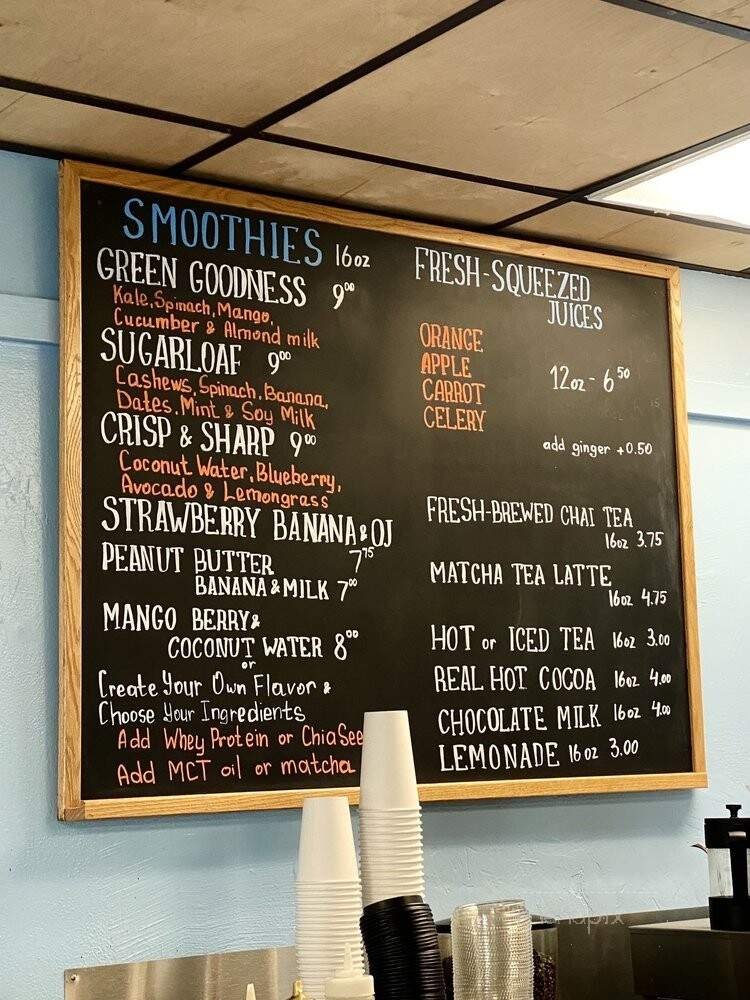 SMOOTHIES 16oz
GREEN GOODNESS 9⁰⁰
Kale, Spinach, Mango,
Cucumber & Almond milk
SUGARLOAF 9⁰⁰
Cashews, Spinach, Banana,
Dates, Mint & Soy Milk
CRISP & SHARP 9⁰⁰
Coconut Water, Blueberry,
Avocado & Lemongrass
STRAWBERRY BANANA & OJ
7⁷⁵
PEANUT BUTTER
BANANA & MILK 7⁰⁰
MANGO BERRY &
COCONUT WATER 8⁰⁰
or
Create Your Own Flavor &
Choose Your Ingredients
Add Whey Protein or Chia See
Add MCT oil or matcha
FRESH-SQUEEZED
JUICES
ORANGE
APPLE
CARROT
CELERY
12oz - 6⁵⁰
add ginger +0.50
FRESH-BREWED CHAI TEA
16oz 3.75
MATCHA TEA LATTE
16oz 4.75
HOT or ICED TEA 16oz 3.00
REAL HOT COCOA 16oz 4.00
CHOCOLATE MILK 16oz 4.00
LEMONADE 16oz 3.00